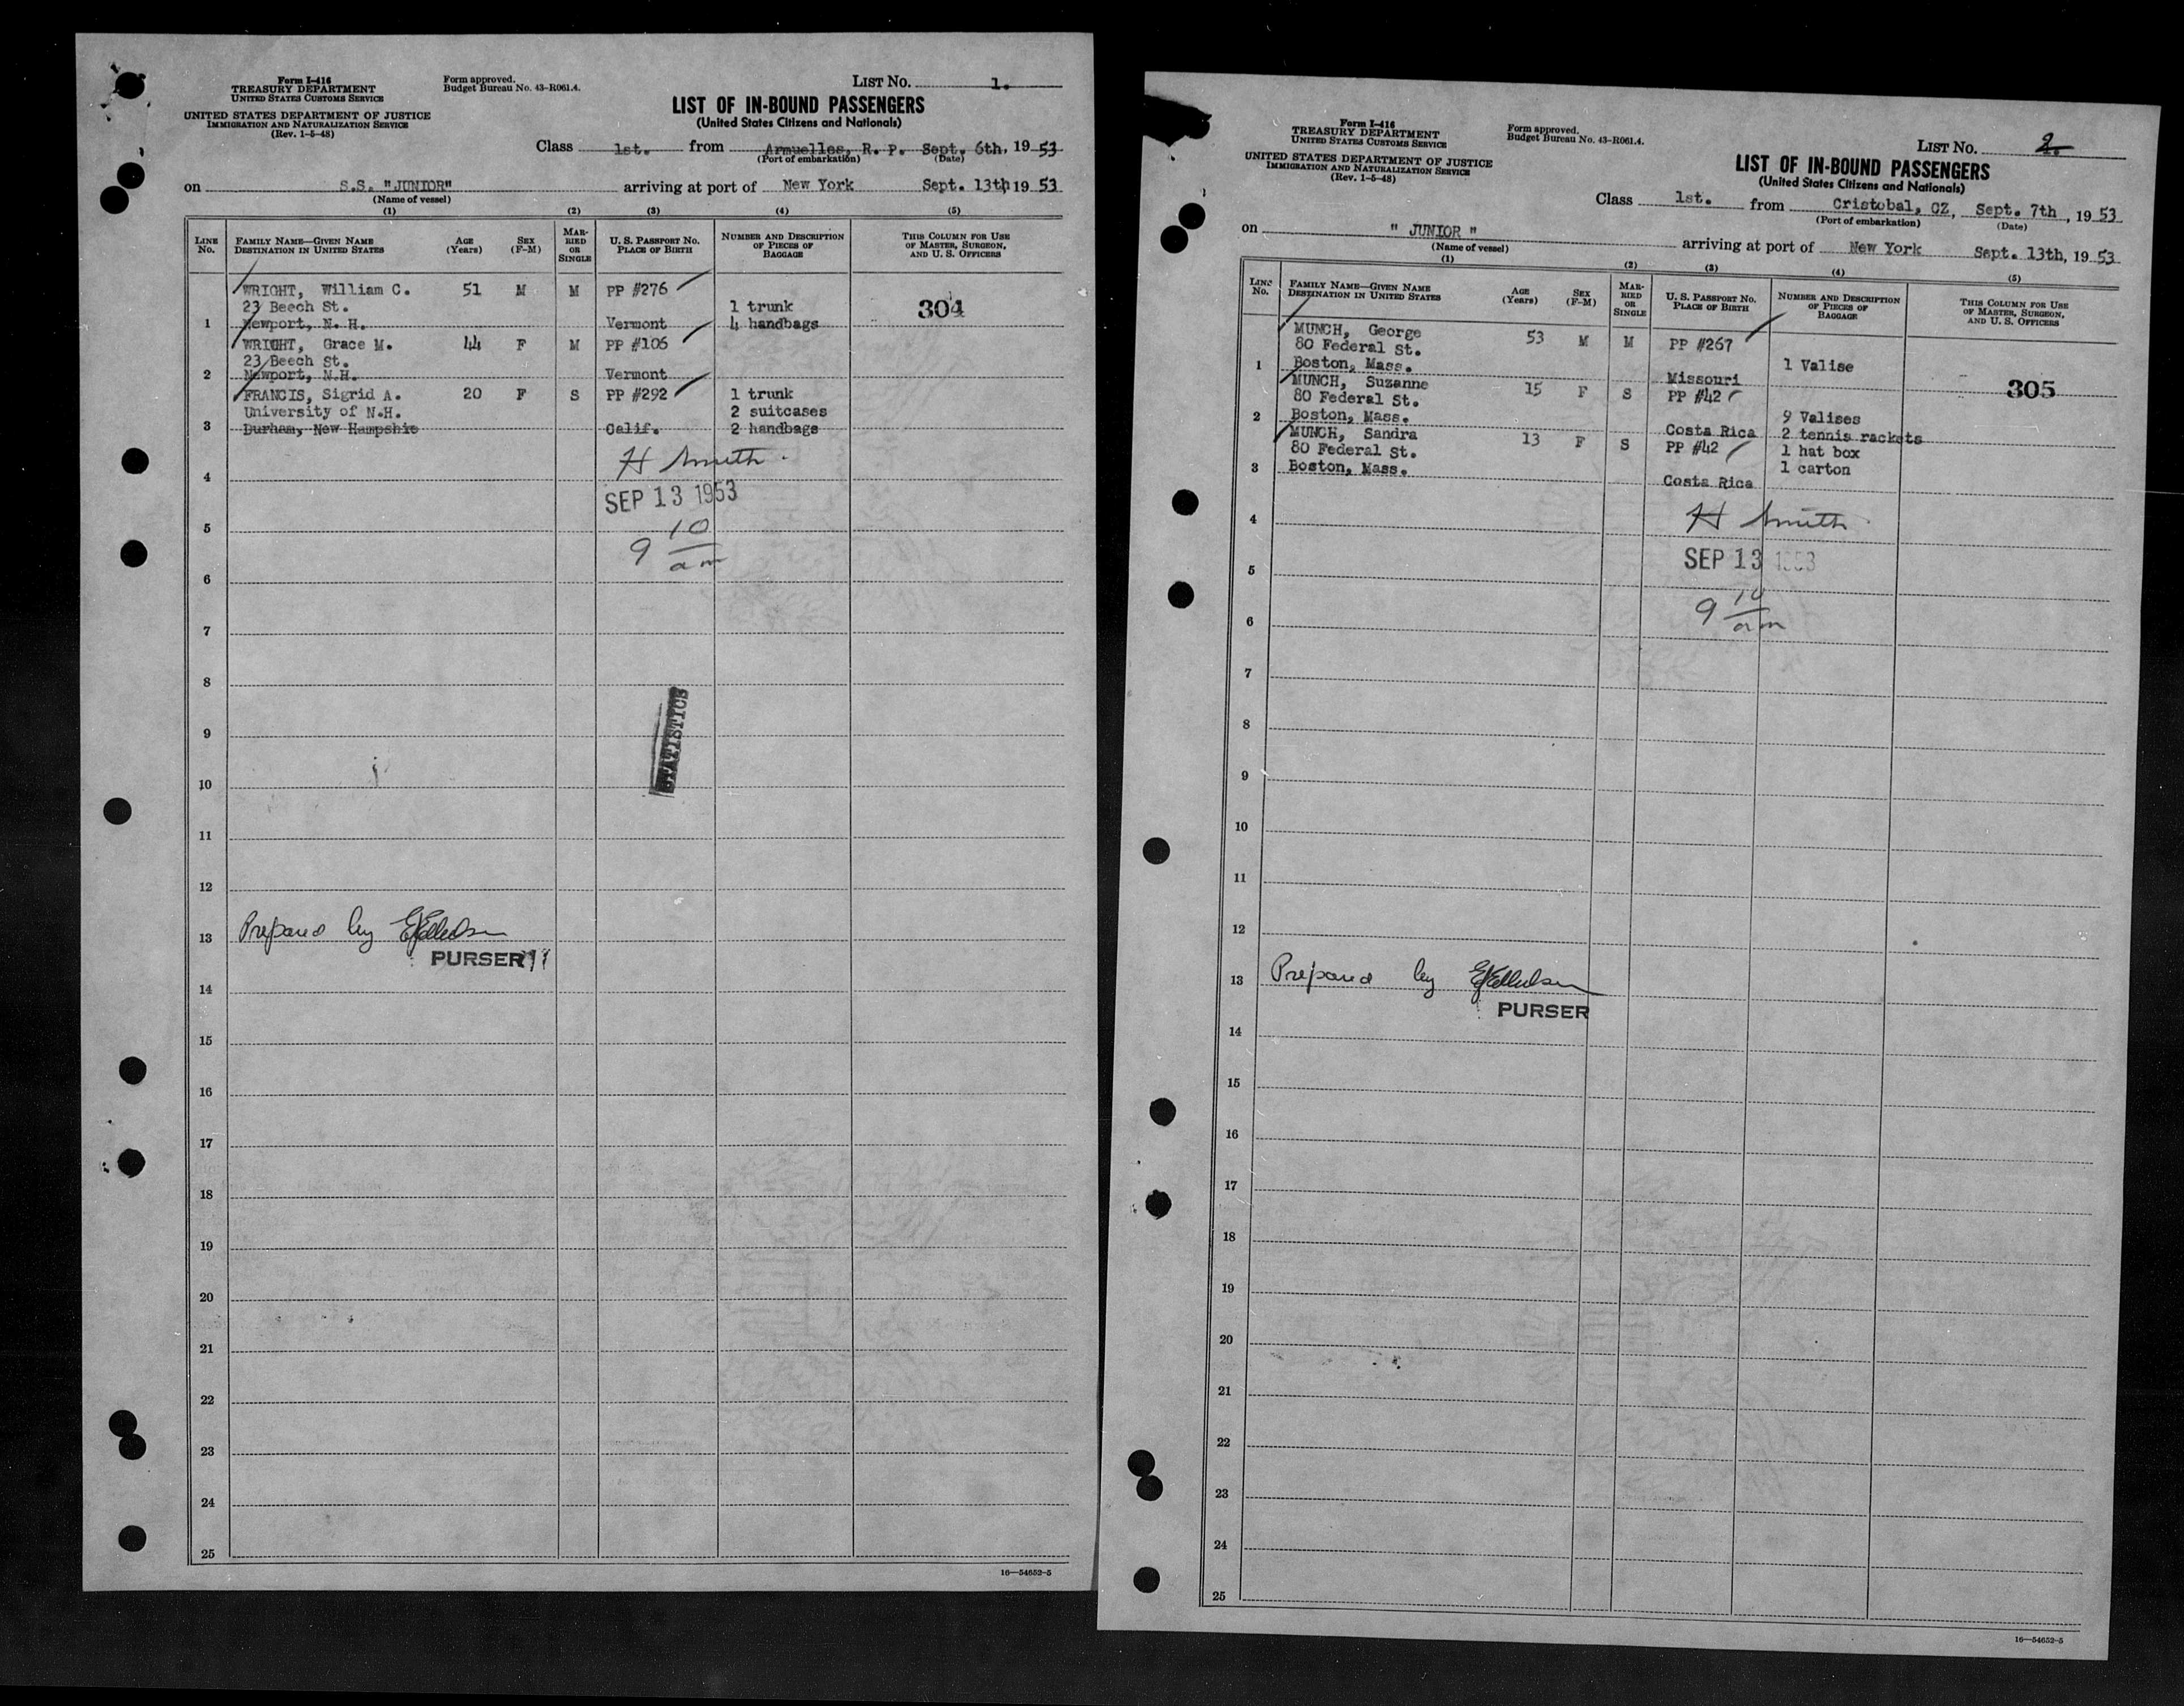 Form I-416
TREASURY DEPARTMENT
UNITED STATES CUSTOMS SERVICE
UNITED STATES DEPARTMENT OF JUSTICE
IMMIGRATION AND NATURALIZATION SERVICE
(Rev. 1-5-48)
Form approved.
Budget Bureau No. 43-R061.4.
LIST NO. 1.
LIST OF IN-BOUND PASSENGERS
(United States Citizens and Nationals)
Class 1st. from Armuelles, R. P. Sept. 6th, 1953
(Port of embarkation) (Date)
on S.S. "JUNIOR" arriving at port of New York Sept. 13th 1953
(Name of vessel)
(1) (2) (3) (4) (5)
LINE No. FAMILY NAME—GIVEN NAME DESTINATION IN UNITED STATES AGE (Years) SEX (F-M) MARRIED OR SINGLE U. S. PASSPORT NO. PLACE OF BIRTH NUMBER AND DESCRIPTION OF PIECES OF BAGGAGE THIS COLUMN FOR USE OF MASTER, SURGEON, AND U. S. OFFICERS
WRIGHT, William C. 51 M M PP #276
23 Beech St. 1 trunk 304
1 Newport, N. H. Vermont 4 handbags
WRIGHT, Grace M. 44 F M PP #106
23 Beech St.
2 Newport, N.H. Vermont
FRANCIS, Sigrid A. 20 F S PP #292 1 trunk
University of N.H. 2 suitcases
3 Durham, New Hampshire Calif. 2 handbags
H Smith
4
SEP 13 1953
5
9 10 am
6
7
8
STATISTICS
9
10
11
12
13 Prepared by
PURSER
14
15
16
17
18
19
20
21
22
23
24
25
16—54652-5
Form I-416
TREASURY DEPARTMENT
UNITED STATES CUSTOMS SERVICE
UNITED STATES DEPARTMENT OF JUSTICE
IMMIGRATION AND NATURALIZATION SERVICE
(Rev. 1-5-48)
Form approved.
Budget Bureau No. 43-R061.4.
LIST NO. 2.
LIST OF IN-BOUND PASSENGERS
(United States Citizens and Nationals)
Class 1st. from Cristobal, CZ, Sept. 7th, 1953
(Port of embarkation) (Date)
on " JUNIOR " arriving at port of New York Sept. 13th, 1953
(Name of vessel)
(1) (2) (3) (4) (5)
LINE No. FAMILY NAME—GIVEN NAME DESTINATION IN UNITED STATES AGE (Years) SEX (F-M) MARRIED OR SINGLE U. S. PASSPORT NO. PLACE OF BIRTH NUMBER AND DESCRIPTION OF PIECES OF BAGGAGE THIS COLUMN FOR USE OF MASTER, SURGEON, AND U. S. OFFICERS
MUNCH, George 53 M M PP #267
80 Federal St.
1 Boston, Mass. Missouri 1 Valise
MUNCH, Suzanne 15 F S PP #42 305
80 Federal St.
2 Boston, Mass. Costa Rica 9 Valises
MUNCH, Sandra 13 F S PP #42 2 tennis rackets
80 Federal St. 1 hat box
3 Boston, Mass. Costa Rica 1 carton
H Smith
4
SEP 13 1953
5
9 10 am
6
7
8
9
10
11
12
13 Prepared by
PURSER
14
15
16
17
18
19
20
21
22
23
24
25
16—54652-5